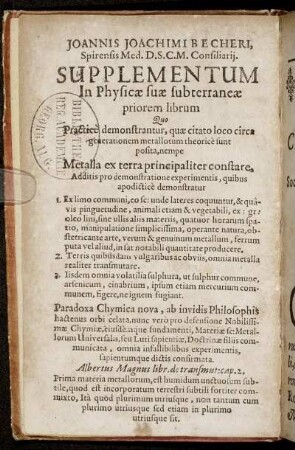 JOANNIS JOACHIMI BECHERI,
Spirensis Med. D.S.C.M. Consiliarij.
SUPPLEMENTUM
In Physicæ suæ subterraneæ
priorem librum
Quo
Practicè demonstrantur, quæ citato loco circa
generationem metallorum theoricè sunt
posita, nempe
Metalla ex terra principaliter constare.
Additis pro demonstratione experimentis, quibus
apodicticè demonstratur
1. Ex limo communi, eo sc: unde lateres coquuntur, & quâ-
vis pinguetudine, animali etiam & vegetabili, ex: gr:
oleo lini, sine ullis aliis materiis, quatuor horarum spa-
tio, manipulatione simplicissima, operante natura, ob-
stetricante arte, verum & genuinum metallum, ferrum
puta vel aliud, in sat notabili quantitate producere,
2. Terris quibusdam vulgaribus ac obviis, omnia metalla
realiter transmutare.
3. Iisdem omnia volatilia sulphura, ut sulphur commune,
arsenicum, cinabrium, ipsum etiam mercurium com-
munem, figere, ne ignem fugiant.
Paradoxa Chymica nova, ab invidis Philosophis
hactenus orbi celata, nunc verò pro defensione Nobilissi-
mæ Chymiæ, ejusdemque fundamenti, Materiæ sc: Metal-
lorum Universalis, seu Luti sapientiæ, Doctrinæ filiis com-
municata, omnia infallibilibus experimentis,
sapientumque dictis confirmata.
Albertus Magnus libr. de transmut: cap. 2.
Prima materia metallorum, est humidum unctuosum sub-
tile, quod est incorporatum terrestri subtili fortiter com-
mixto, Ità quod plurimum utriusque, non tantum cum
plurimo utriusque sed etiam in plurimo
utriusque sit.